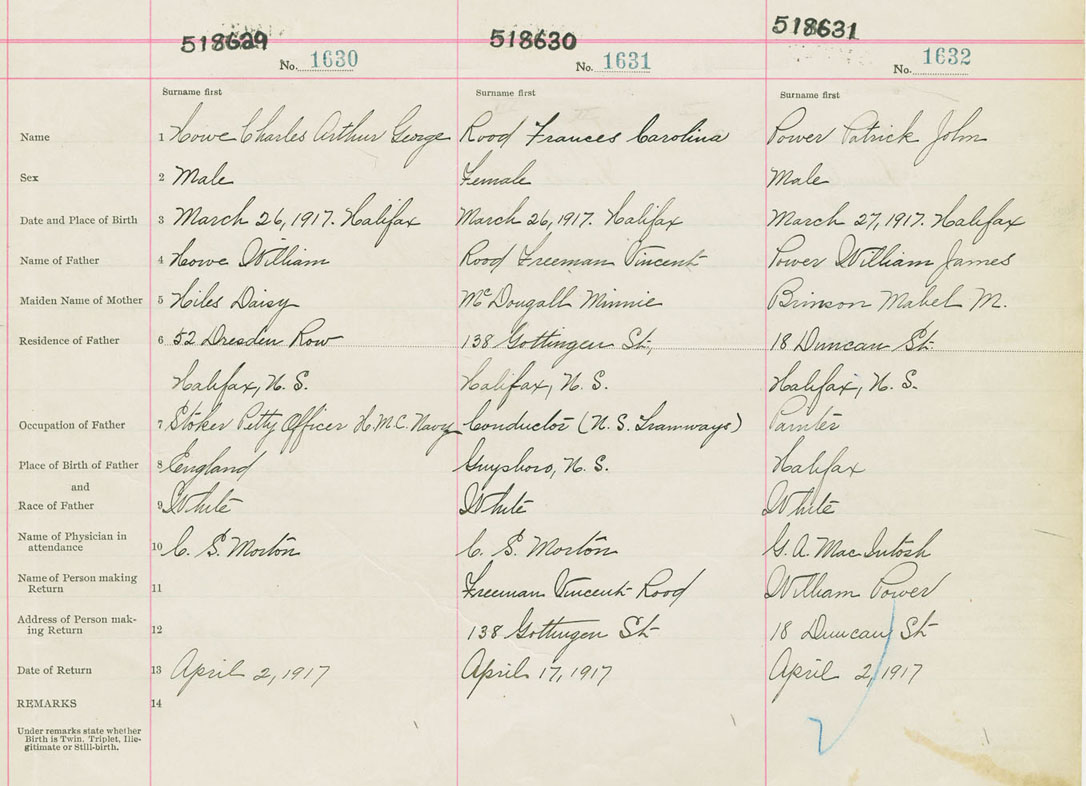 518629 518630 518631
No. 1630 No. 1631 No. 1632
Surname first Surname first Surname first
Name 1 Howe Charles Arthur George Rood Frances Carolina Power Patrick John
Sex 2 Male Female Male
Date and Place of Birth 3 March 26, 1917. Halifax March 26, 1917. Halifax March 27, 1917. Halifax
Name of Father 4 Howe William Rood Freeman Vincent Power William James
Maiden Name of Mother 5 Hiles Daisy McDougall Minnie Brinson Mabel M.
Residence of Father 6 52 Dresden Row 138 Gottingen St., 18 Duncan St.
Halifax, N. S. Halifax, N. S. Halifax, N. S.
Occupation of Father 7 Stoker Petty Officer H.M.C. Navy Conductor (N. S. Tramways) Painter
Place of Birth of Father 8 England Guysboro, N. S. Halifax
and
Race of Father 9 White White White
Name of Physician in
attendance 10 C. S. Morton C. S. Morton G. A. MacIntosh
Name of Person making
Return 11 Freeman Vincent Rood William Power
Address of Person mak-
ing Return 12 138 Gottingen St 18 Duncan St
Date of Return 13 April 2, 1917 April 17, 1917 April 2, 1917
REMARKS 14
Under remarks state whether
Birth is Twin. Triplet, Ille-
gitimate or Still-birth.